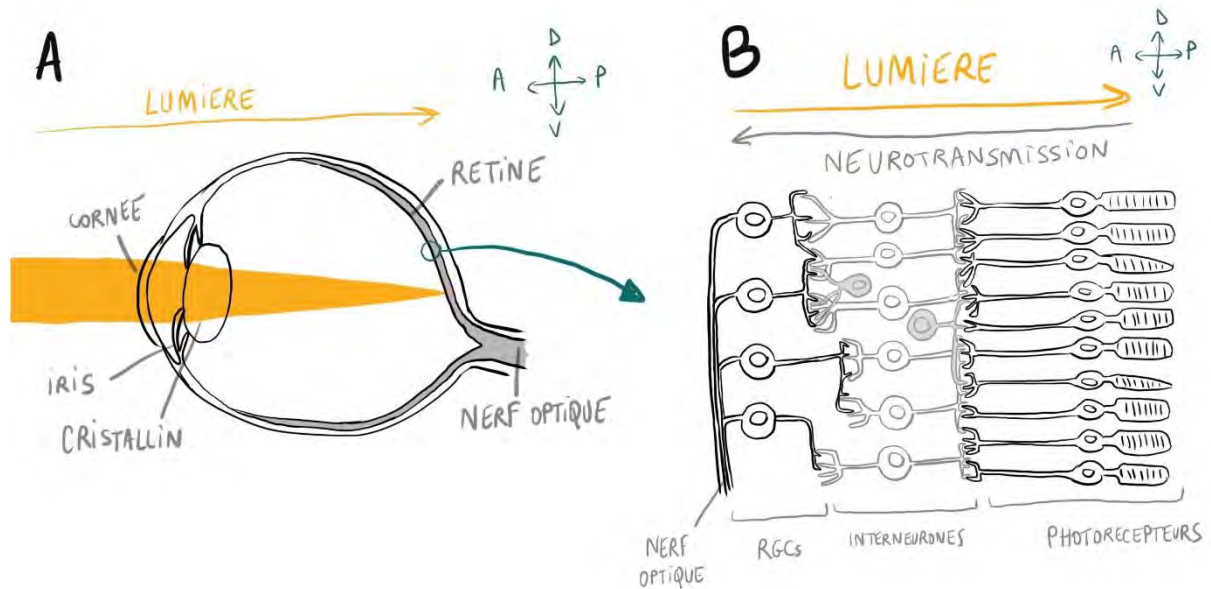 A
D
A P
V
LUMIERE
RETINE
CORNEE
IRIS
CRISTALLIN
NERF OPTIQUE
B
D
A P
V
LUMIERE
NEUROTRANSMISSION
NERF
OPTIQUE
RGCs
INTERNEURONES
PHOTORECEPTEURS